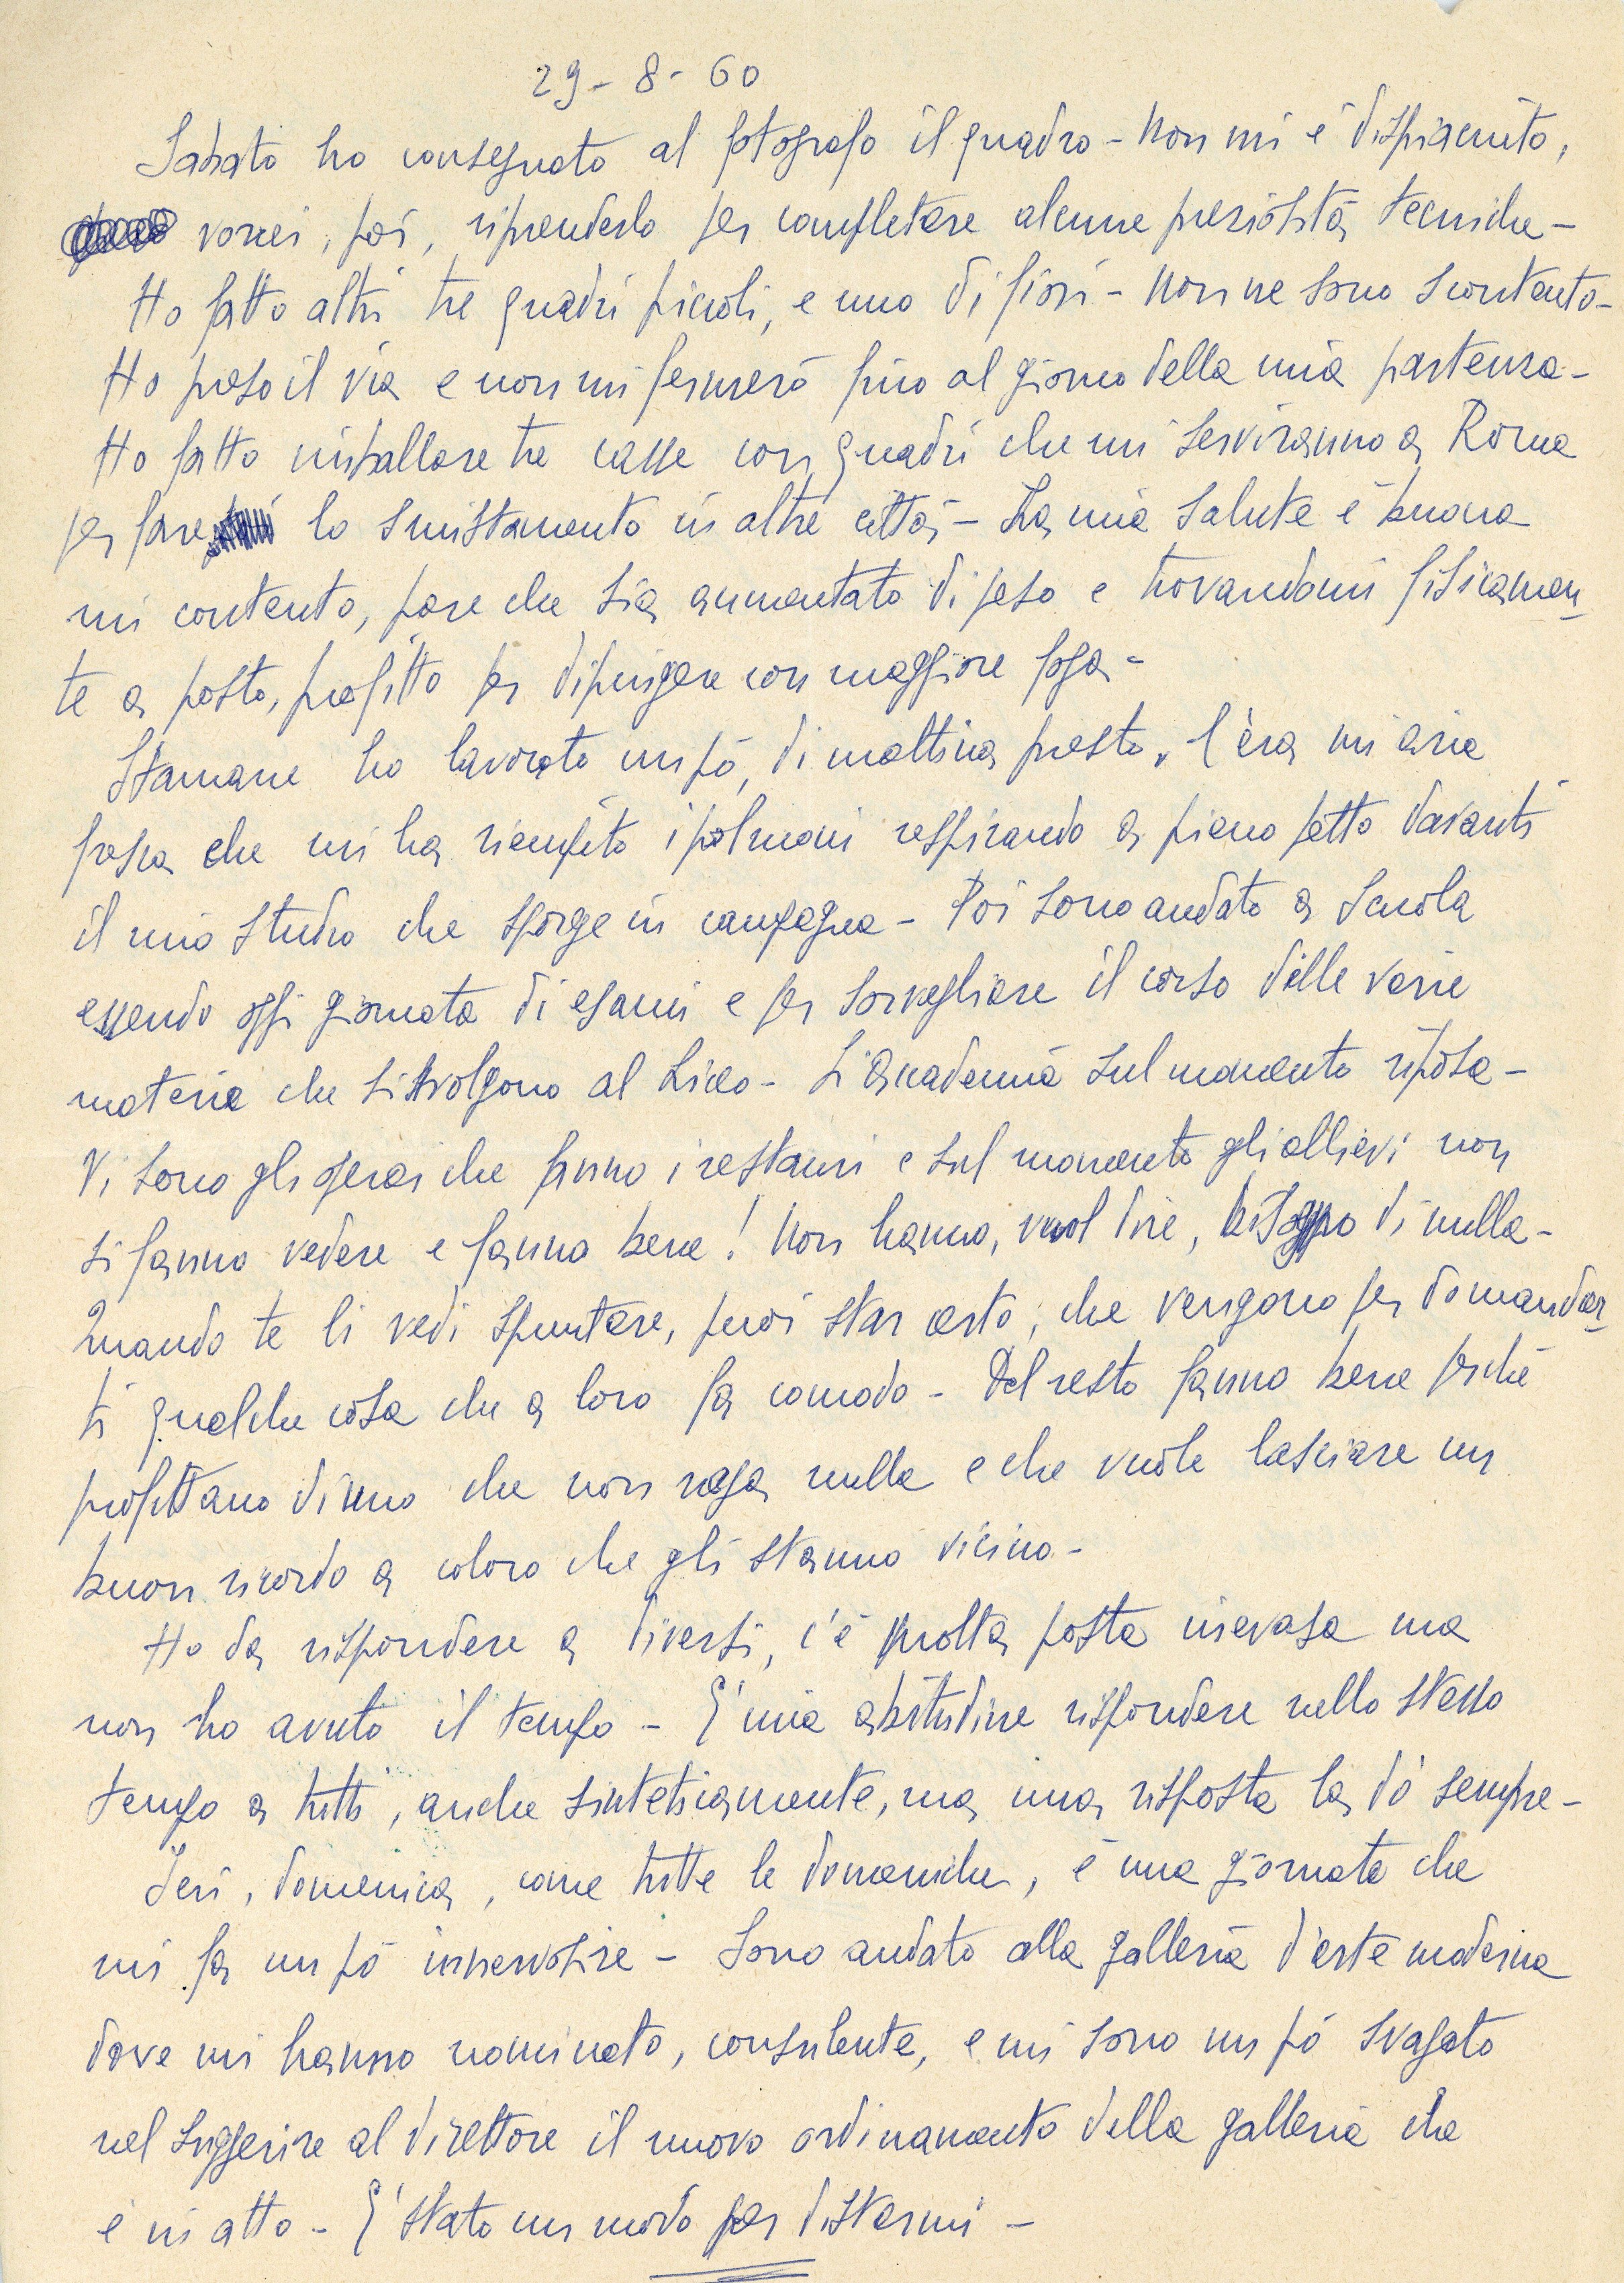 29-8-60
Sabato ho consegnato al fotografo il quadro - Non mi è dispiaciuto,
vorrei, poi, riprenderlo per completare alcune preziosità tecniche -
Ho fatto altri tre quadri piccoli, e uno di fiori - Non ne sono scontento -
Ho preso il via e non mi fermerò fino al giorno della mia partenza -
Ho fatto imballare tre casse con quadri che mi serviranno a Roma
per fare lo smistamento in altre città - La mia salute è buona
mi contento, pare che sia aumentato di peso e trovandomi fisicamen-
te a posto, profitto per dipingere con maggiore foga -
Stamane ho lavorato un pò, di mattina presto. C'era un aria
fresca che mi ha riempito i polmoni respirando a pieno petto davanti
il mio studio che sporge in campagna - Poi sono andato a Scuola
essendo oggi giornata di esami e per sorvegliare il corso delle varie
materie che si svolgono al Liceo - L'Accademia sul momento riposa -
Vi sono gli operai che fanno i restauri e sul momento gli allievi non
si fanno vedere e fanno bene! Non hanno, vuol dire, bisogno di nulla -
Quando te li vedi spuntare, puoi star certo, che vengono per domandar-
ti qualche cosa che a loro fa comodo - Del resto fanno bene perché
profittano di uno che non nega nulla e che vuole lasciare un
buon ricordo a coloro che gli stanno vicino -
Ho da rispondere a diversi, c'è molta posta inevasa ma
non ho avuto il tempo - E' mia abitudine rispondere nello stesso
tempo a tutti, anche sinteticamente, ma una risposta la dò sempre -
Ieri, domenica, come tutte le domeniche, è una giornata che
mi fa un pò innervosire - Sono andato alla galleria d'arte moderna
dove mi hanno nominato, consulente, e mi sono un pò svagato
nel suggerire al direttore il nuovo ordinamento della galleria che
è in atto - E' stato un modo per distrarmi -